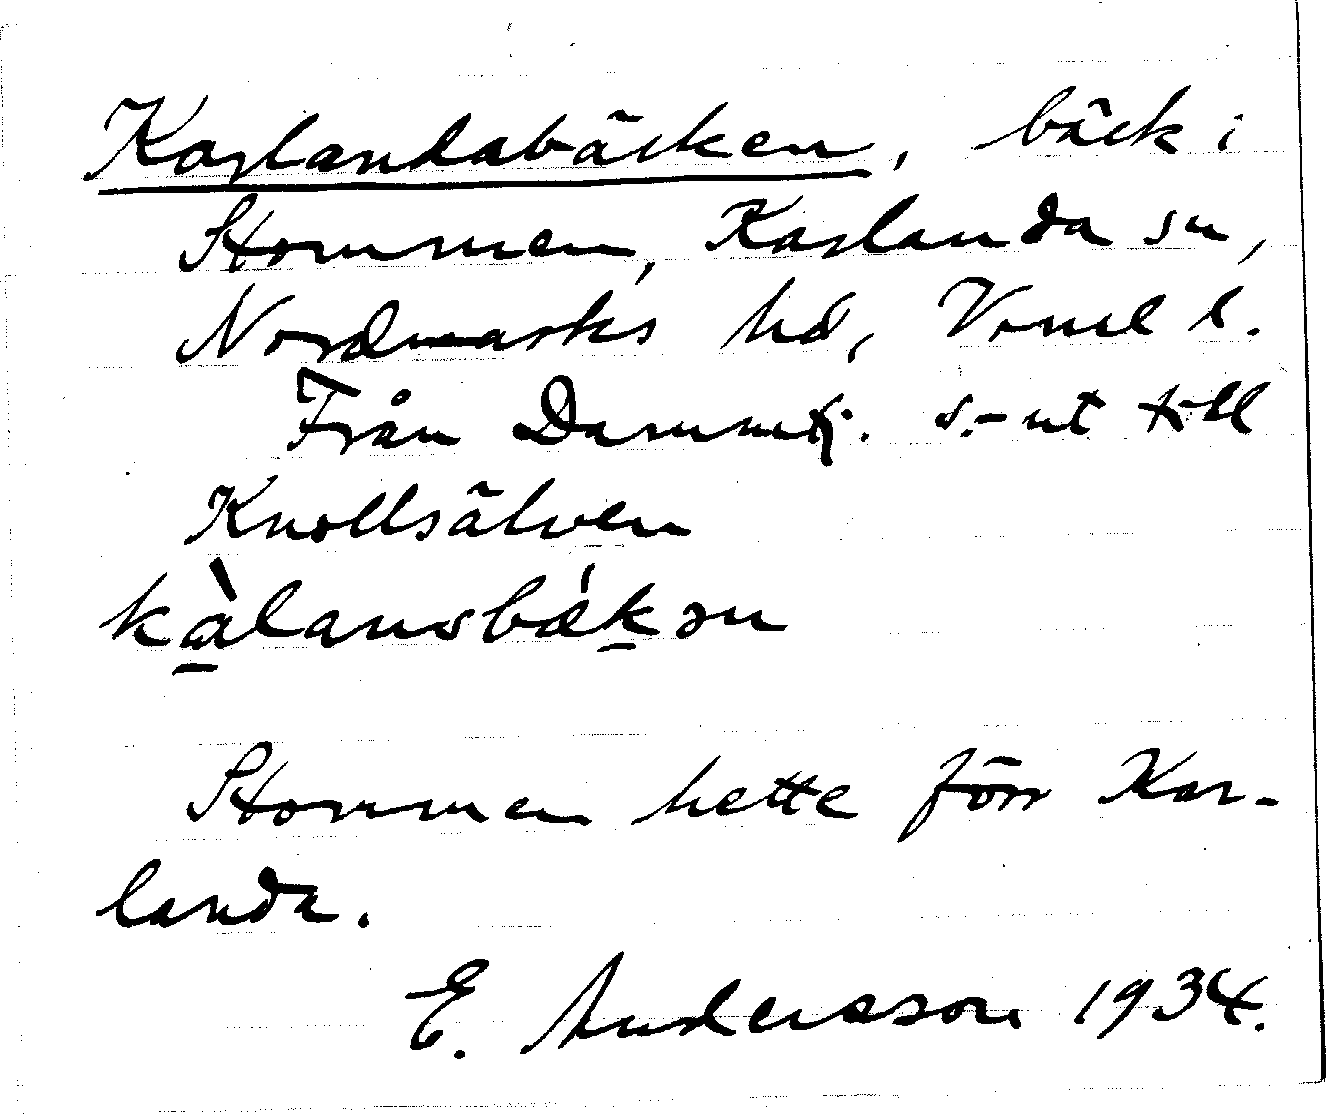 Karlandabäcken, bäck i
Stommen, Karlanda sn,
Nordmarks hd, Vrml l.
Från Dammtj. s.-ut till
Knollsälven
kàlansbǽkən
Stommen hette förr Kar-
landa.
E. Andersson 1934.